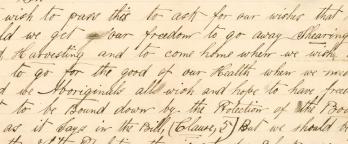 wish to pass this to ask for our wishes that
ld we get our freedom to go away Shearing
d Harvesting and to come home when we wish
to go for the good of our Health when we
d we Aboriginals all wish and hope to have free
t to be Bound down by the Protection of the
as it says in the Bill, (Clause, 5) But we should b